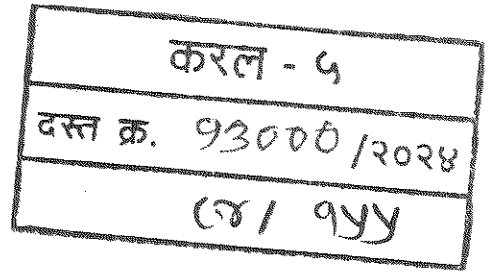 करल - ५
दस्त क्र. १३००० /२०२४
/ १५५